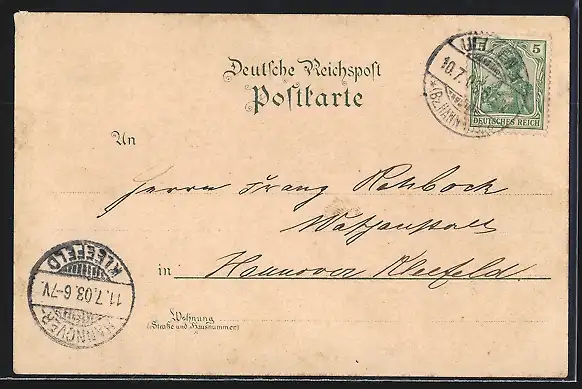 Deutsche Reichspost
Postkarte
5
DEUTSCHES REICH
10.7.
(Bz. HANN
An
Herrn Franz Rehbock
in Hannover Kleefeld.
KLEEFELD
11.7.03.6-7V.
HANNOVER-
Wohnung
(Straße und Hausnummer)